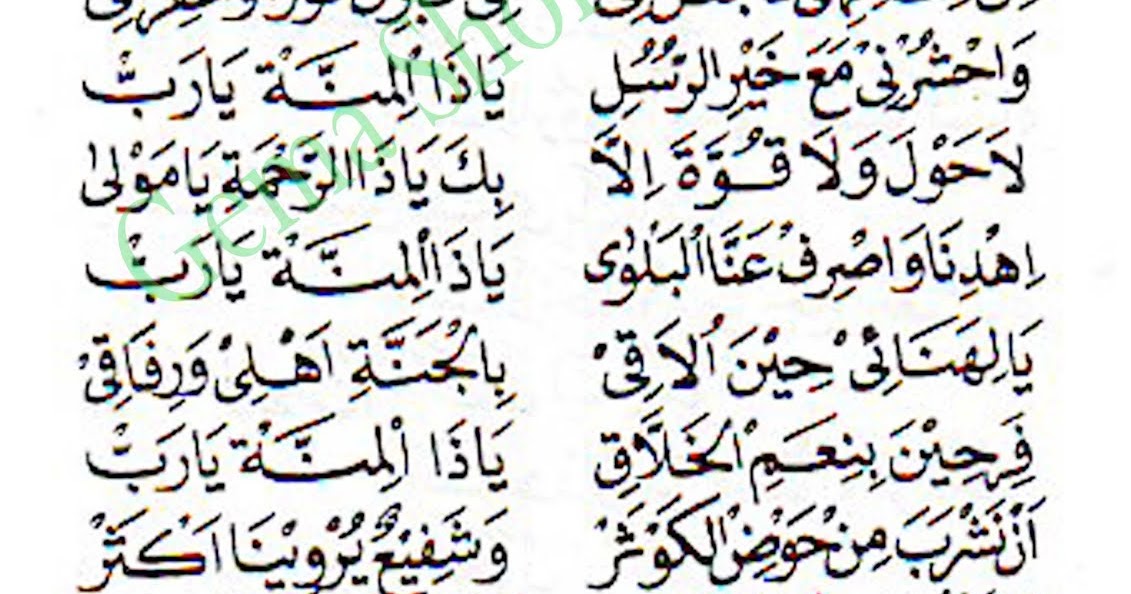 وَاحْشُرْنِيْ مَعَ خَيْرِ الرُّسُلِ يَاذَا الْمِنَّةْ يَارَبّْ
لَاحَوْلَ وَلَا قُوَّةَ اِلَّا بِكَ يَاذَا الرَّحْمَةِ يَا مَوْلٰى
اِهْدِنَا وَاصْرِفْ عَنَّا الْبَلْوٰى يَاذَا الْمِنَّةْ يَارَبّْ
يَا لِهَنَائِيْ حِيْنَ اُلَاقِيْ بِالْجَنَّةِ اَهْلِيْ وَرِفَاقِيْ
فَرِحِيْنَ بِنِعَمِ الْخَلَّاقِ يَاذَا الْمِنَّةْ يَارَبّْ
اَنْ نَشْرَبَ مِنْ حَوْضِ الْكَوْثَرْ وَشَفِيْعٌ يُرْوِيْنَا اَكْثَرْ
Gema Sho